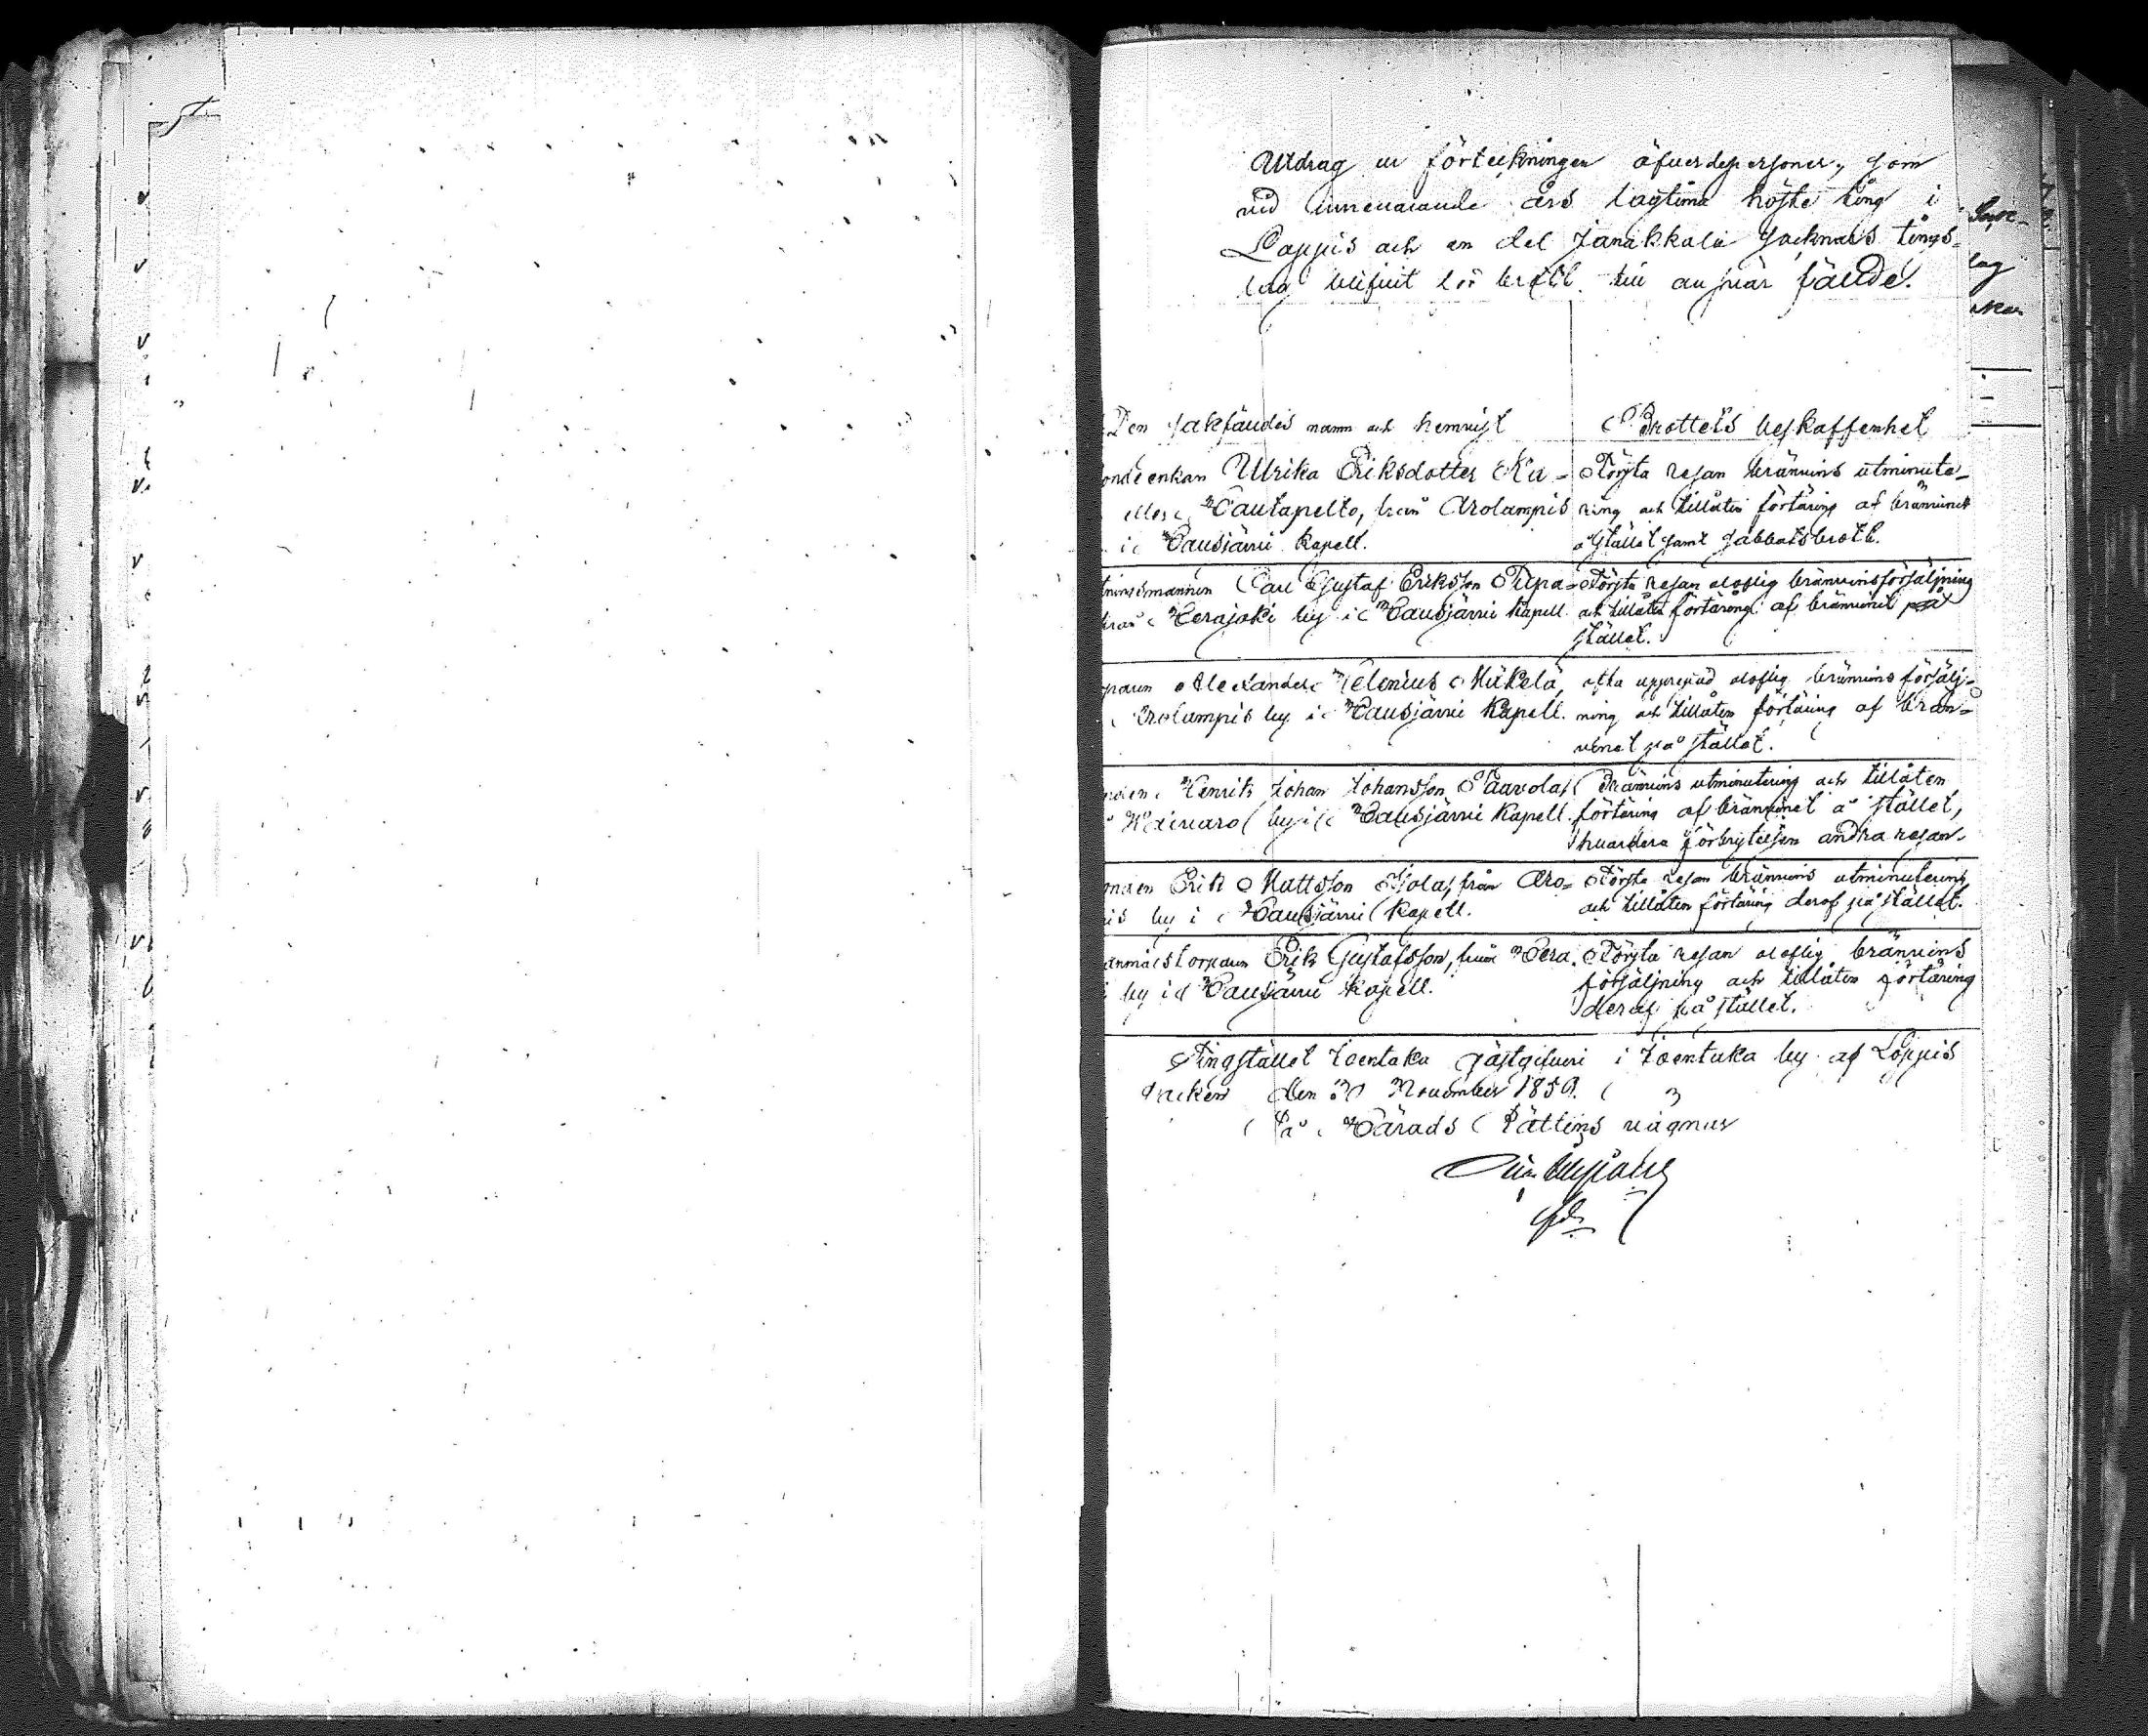 Utdrag ur förteckningen öfver de personer, som
vid innevarande års lagtima höste ting i
Loppis och en del Janakkala Socknars tings-
lag blifvit för brott till ansvar fällde.
Den sakfäldes namn och hemvist
Brottets beskaffenhet
ondeenkan Ulrika Eriksdotter
Hautapelto, från Arolampis
i Hausjärvi Kapell.
Första resan bränvins utminute-
ring och tillåten förtäring af bränvinet
å stället samt sabbatsbrott.
Carl Gustaf Eriksson Pupa
från Herajoki by i Hausjärvi Kapell.
Första resan oloflig bränvinsförsäljning
och tillåten förtäring af bränvinet på
stället.
Alexander Helenius Mikelä,
Arolampis by i Hausjärvi Kapell.
oloflig bränvins försälj-
ning och tillåten förtäring af brän-
vinet på stället.
nden Henrik Johan Johansson Paavola,
by i Hausjärvi Kapell.
Bränvins utminutering och tillåten
förtäring af bränvinet å stället,
hvardera förbrytelsen andra resan.
onden Erik Mattsson Isola, från Aro-
is by i Hausjärvi Kapell.
Första resan bränvins utminutering
och tillåten förtäring deraf på stället.
Erik Gustafsson, från Hera-
i by i Hausjärvi Kapell.
Första resan oloflig bränvins
försäljning och tillåten förtäring
deraf på stället.
Tingstället Joentaka gästgifveri i Joentaka by af Loppis
Socken den 30 November 1850.
På Härads Rättens vägnar